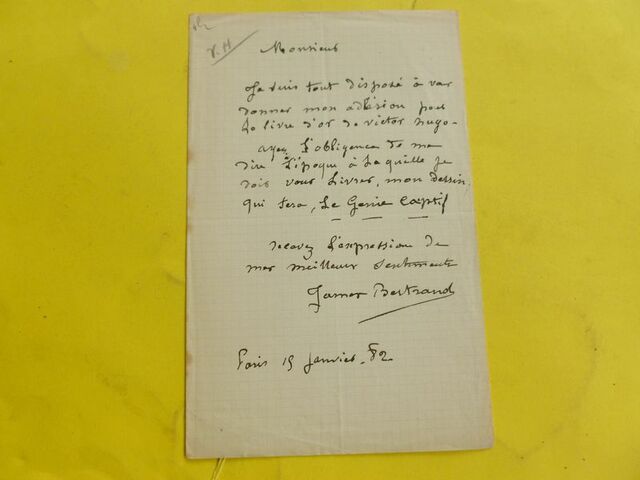 V. H
Monsieur
Je suis tout disposé à vous
donner mon adhésion pour
Le livre d'or de victor hugo -
ayez L'obligeance de me
dire L'époque à Laquelle je
dois vous Livrer, mon dessin
qui sera, Le Genie Captif
recevez L'expression de
mes meilleurs sentiments
James Bertrand
Paris 15 janvier - 82